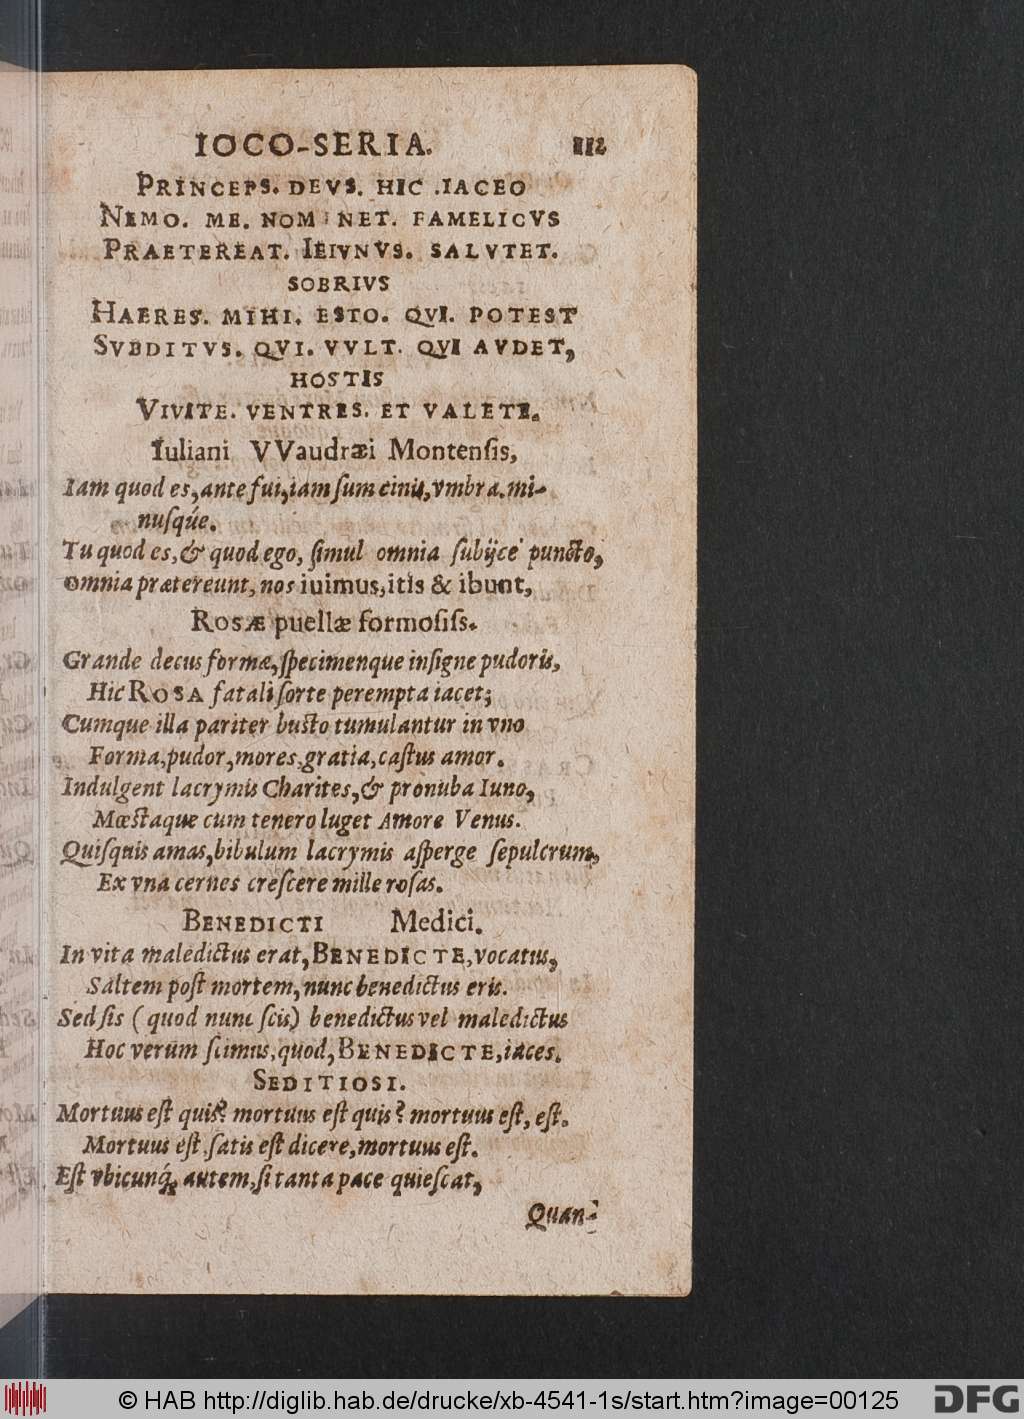 IOCO-SERIA. 112
PRINCEPS. DEVS. HIC .IACEO
NEMO. ME. NOMINET. FAMELICVS
PRAETEREAT. IEIVNVS. SALVTET.
SOBRIVS
HAERES. MIHI. ESTO. QVI. POTEST
SVBDITVS. QVI. VVLT. QVI AVDET,
HOSTIS
VIVITE. VENTRES. ET VALETE.
Iuliani VVaudræi Montenſis,
Iam quod es, ante fui, iam ſum cinis, vmbra. mi-
nuſqúe.
Tu quod es, & quod ego, ſimul omnia ſubijce puncto,
omnia prætereunt, nos iuimus, itis & ibunt,
ROSÆ puellæ formoſiſs.
Grande decus formæ, ſpecimenque inſigne pudoris,
Hic ROSA fatali ſorte perempta iacet;
Cumque illa pariter busto tumulantur in vno
Forma, pudor, mores, gratia, caſtus amor.
Indulgent lacrymis Charites, & pronuba Iuno,
Mœstaque cum tenero luget Amore Venus.
Quiſquis amas, bibulum lacrymis aſperge ſepulcrum,
Ex vna cernes creſcere mille roſas.
BENEDICTI Medici.
In vita maledictus erat, BENEDICTE, vocatus,
Saltem poſt mortem, nunc benedictus eris.
Sed ſis (quod nunc ſcis) benedictus vel maledictus
Hoc verùm ſcimus, quod, BENEDICTE, iaces.
SEDITIOSI.
Mortuus eſt quis? mortuus eſt quis? mortuus eſt, eſt.
Mortuus eſt, ſatis eſt dicere, mortuus eſt.
Eſt vbicunq́; autem, ſi tanta pace quieſcat,
Quan-
© HAB http://diglib.hab.de/drucke/xb-4541-1s/start.htm?image=00125
DFG